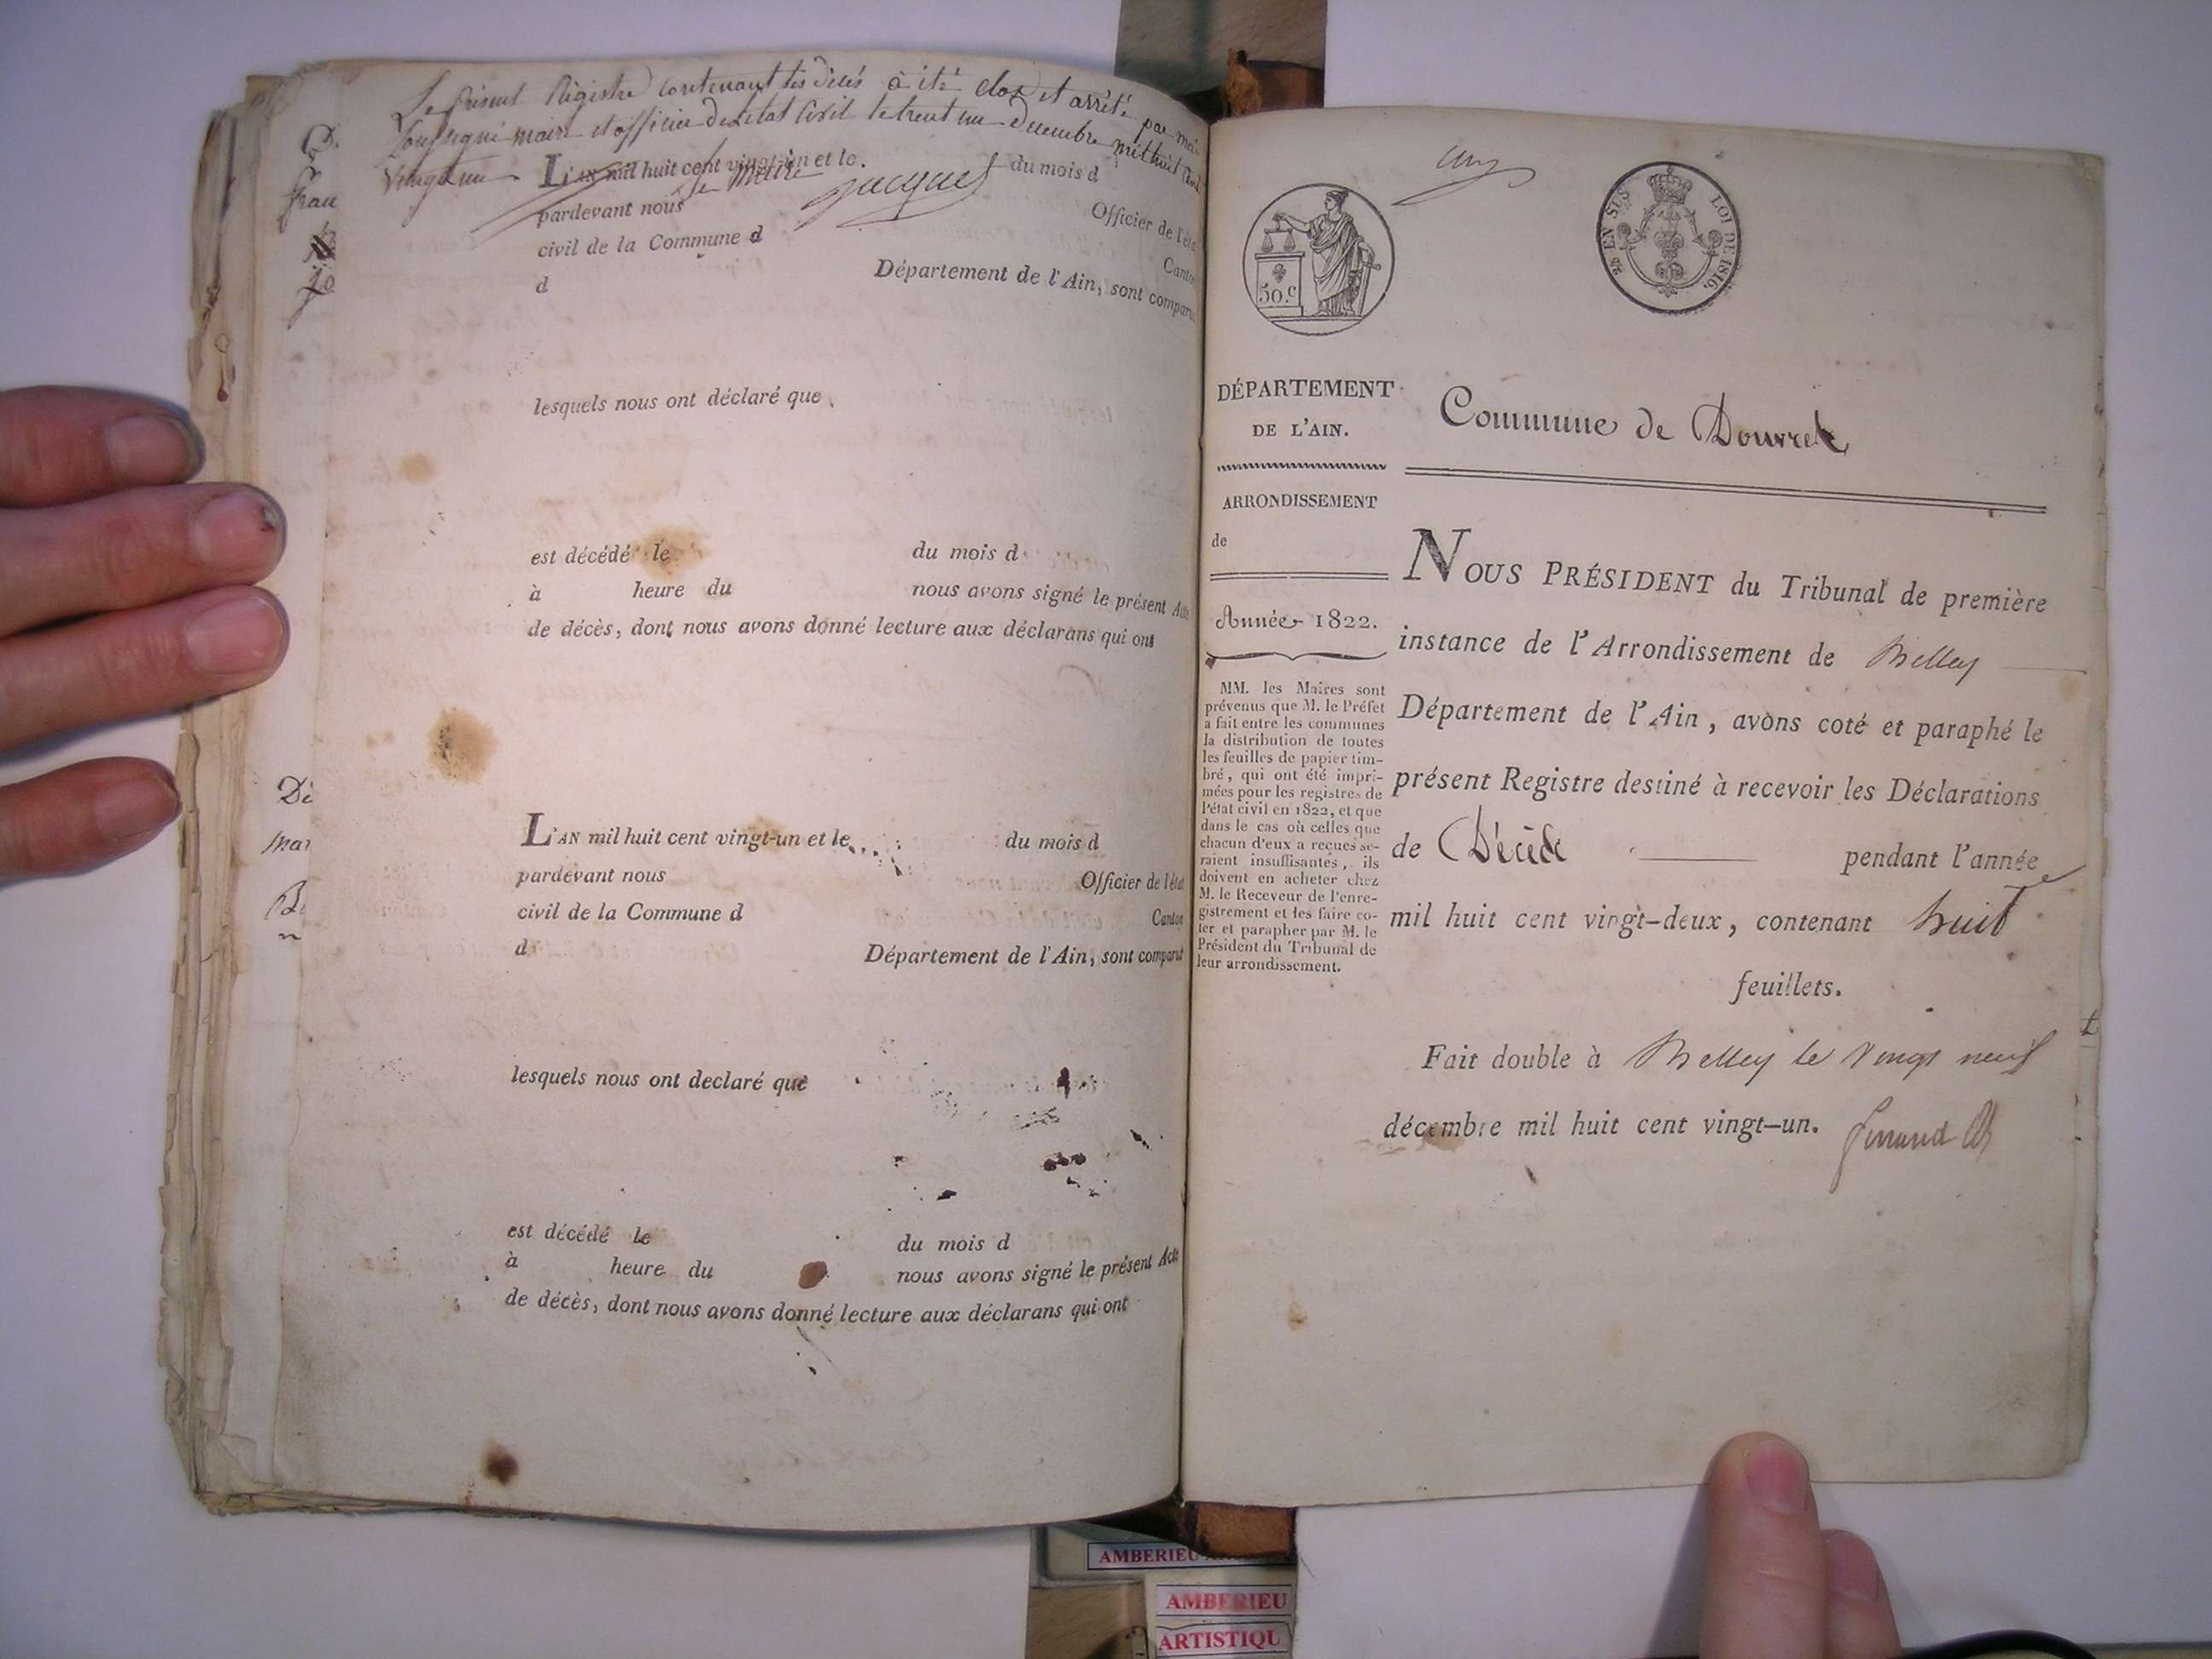 Le présent Régistre contenant les décés à été clos et arrêté par moi
soussigné maire et officier de l'etat Civil le trent un Decembre mil huit cent
Vingt un
Le Maire Jacquet
L'AN mil huit cent vingt-un et le du mois d
pardevant nous Officier de l'éta
civil de la Commune d Canton
d Département de l'Ain, sont comparu
lesquels nous ont déclaré que
est décédé le du mois d
à heure du nous avons signé le présent Acte
de décès, dont nous avons donné lecture aux déclarans qui ont
L'AN mil huit cent vingt-un et le du mois d
pardevant nous Officier de l'état
civil de la Commune d Canton
d Département de l'Ain, sont comparu
lesquels nous ont declaré que
est décédé le du mois d
à heure du nous avons signé le présent Acte
de décès, dont nous avons donné lecture aux déclarans qui ont
50.c
25 EN SUS LOI DE 1816.
DÉPARTEMENT
DE L'AIN.
Commune de Douvres
ARRONDISSEMENT
de
Année 1822.
MM. les Maires sont
prévenus que M. le Préfet
a fait entre les communes
la distribution de toutes
les feuilles de papier tim-
bré, qui ont été impri-
mées pour les registres de
l'état civil en 1822, et que
dans le cas où celles que
chacun d'eux a reçues se-
raient insuffisantes, ils
doivent en acheter chez
M. le Receveur de l'enre-
gistrement et les faire co-
ter et parapher par M. le
Président du Tribunal de
leur arrondissement.
NOUS PRÉSIDENT du Tribunal de première
instance de l'Arrondissement de Belley
Département de l'Ain, avons coté et paraphé le
présent Registre destiné à recevoir les Déclarations
de Décès pendant l'année
mil huit cent vingt-deux, contenant huit
feuillets.
Fait double à Belley le Vingt neuf
décembre mil huit cent vingt-un.
AMBERIEU
AMBERIEU
ARTISTIQU